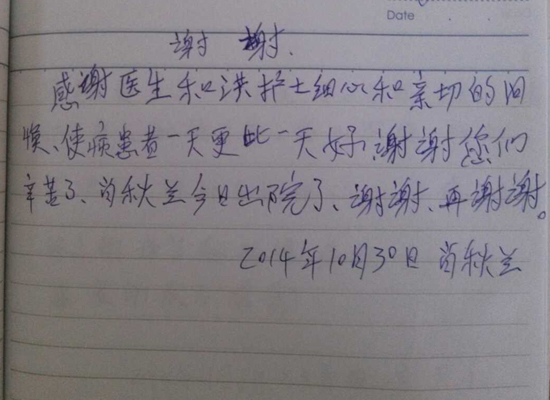 Date
谢谢.
感谢医生和洪护士细心和亲切的问
候、使病患者一天更比一天好.谢谢您们
辛苦了、肖秋兰今日出院了、谢谢、再谢谢。
2014年10月30日 肖秋兰